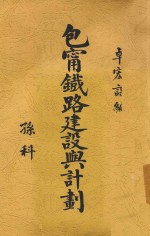 卓宏謀編
包甯鐵路建設與計劃
孫科